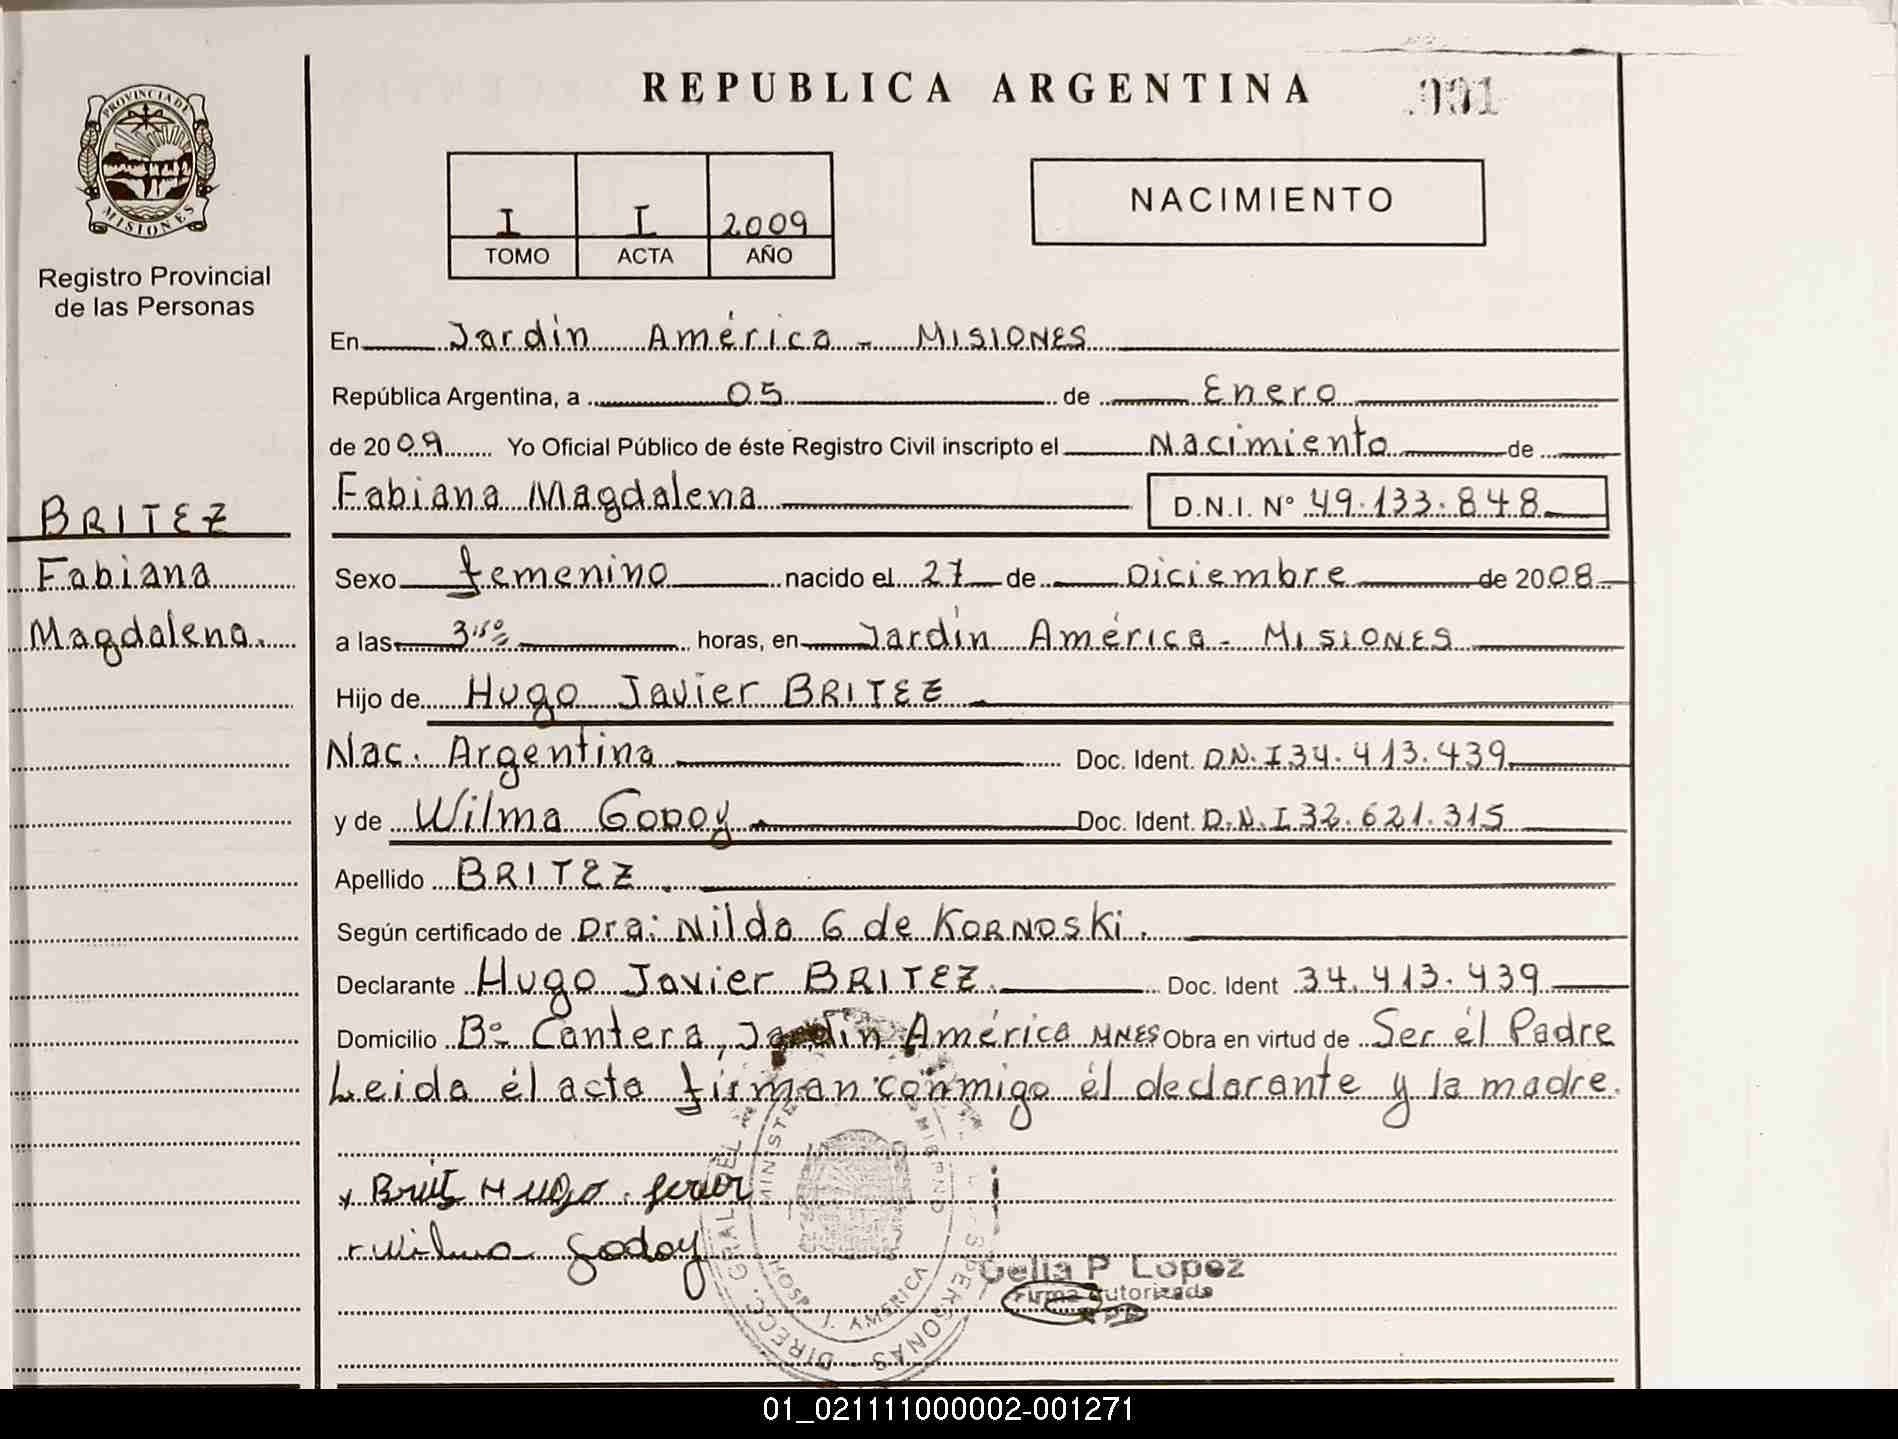 REPUBLICA ARGENTINA
001
PROVINCIA DE
MISIONES
Registro Provincial
de las Personas
I I 2009
TOMO ACTA AÑO
NACIMIENTO
En Jardín América - MISIONES
República Argentina, a 05 de Enero
de 2009 Yo Oficial Público de éste Registro Civil inscripto el Nacimiento de
Fabiana Magdalena D.N.I. Nº 49.133.848
BRITEZ
Fabiana
Magdalena.
Sexo femenino nacido el 27 de Diciembre de 2008
a las horas, en Jardín América - MISIONES
Hijo de Hugo Javier BRITEZ
Nac. Argentina Doc. Ident. D.N.I 34.413.439
y de Wilma GODOY Doc. Ident. D.N.I 32.621.315
Apellido BRITEZ.
Según certificado de Dra: Nilda G de KORNOSKi.
Declarante Hugo Javier BRITEZ. Doc. Ident 34.413.439
Domicilio Bº Cantera, Jardín América MNES Obra en virtud de Ser él Padre
Leida él acta firman conmigo él declarante y la madre.
Hugo
Wilma Godoy
DIRECC. GRAL. DEL
PERSONAS
HOSP. J. AMERICA
Celia P. Lopez
Firma Autorizada
01_021111000002-001271